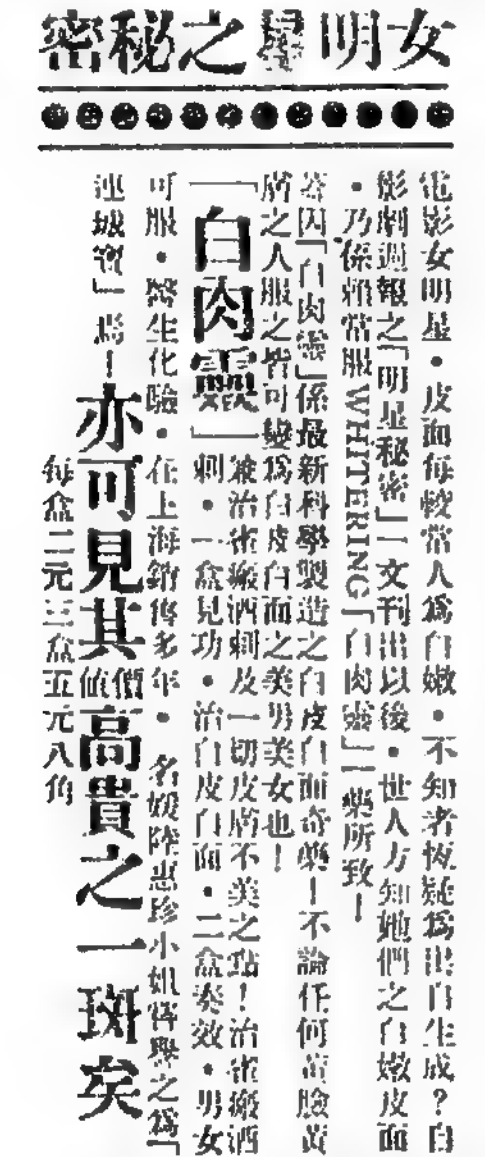 女明星之秘密
電影女明星・皮面每較常人為白嫩・不知者恆疑為出自生成？自
影劇週報之「明星秘密」一文刊出以後・世人方知她們之白嫩皮面
・乃係賴常服WHITERING「白肉靈」一藥所致！
蓋因「白肉靈」係最新科學製造之白皮白面奇藥！不論任何黃臉黃
膚之人服之皆可變為白皮白面之美男美女也！
「白肉靈」
兼治雀瘢酒刺及一切皮膚不美之點！治雀瘢酒
刺・一盒見功・治白皮白面・二盒奏效・男女
可服・醫生化驗・在上海銷售多年・名媛陸惠珍小姐嘗譽之為「
連城寶」焉！亦可見其價值高貴之一斑矣
每盒二元三盒五元八角